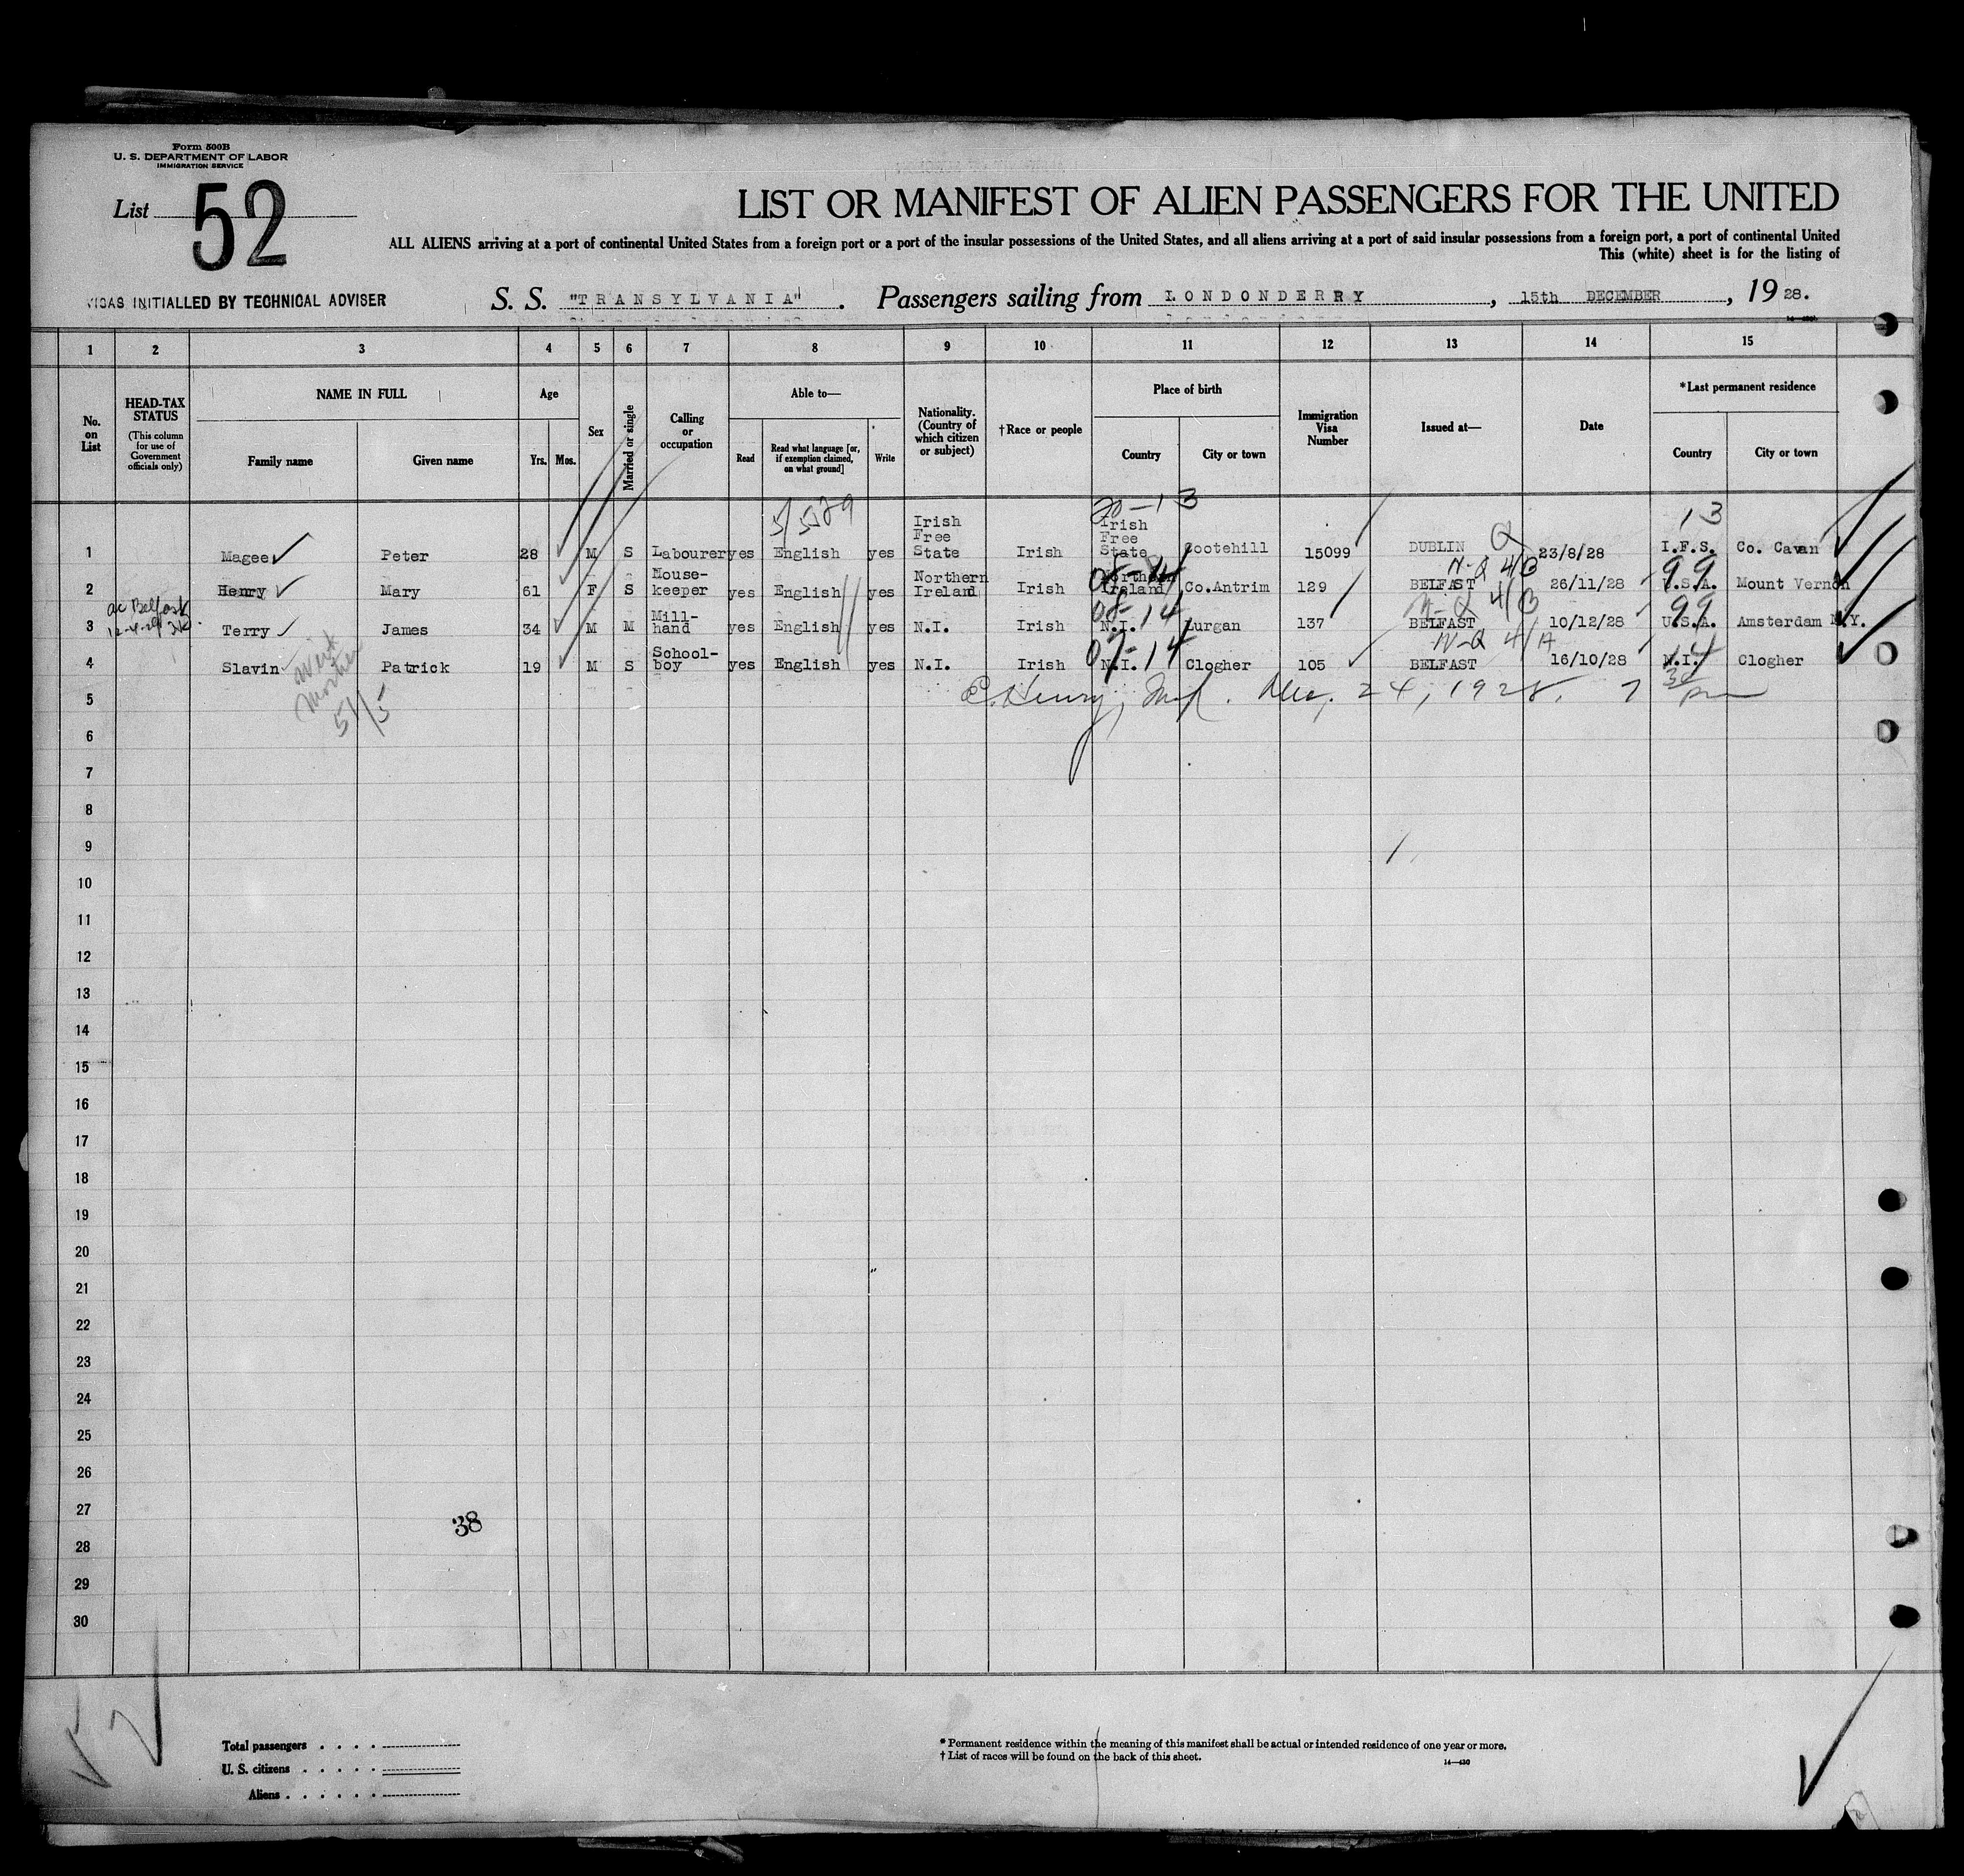 Form 500B
U. S. DEPARTMENT OF LABOR
IMMIGRATION SERVICE
List 52
LIST OR MANIFEST OF ALIEN PASSENGERS FOR THE UNITED
ALL ALIENS arriving at a port of continental United States from a foreign port or a port of the insular possessions of the United States, and all aliens arriving at a port of said insular possessions from a foreign port, a port of continental United
This (white) sheet is for the listing of
VISAS INITIALLED BY TECHNICAL ADVISER
S. S. "TRANSYLVANIA" . Passengers sailing from LONDONDERRY, 15th DECEMBER, 19 28.
1 2 3 4 5 6 7 8 9 10 11 12 13 14 15
No. on List
HEAD-TAX STATUS
(This column for use of Government officials only)
NAME IN FULL
Family name
Given name
Age
Yrs.
Mos.
Sex
Married or single
Calling or occupation
Able to—
Read
Read what language [or, if exemption claimed, on what ground]
Write
Nationality. (Country of which citizen or subject)
†Race or people
Place of birth
Country
City or town
Immigration Visa Number
Issued at—
Date
*Last permanent residence
Country
City or town
20-13
13
1 Magee Peter 28 M S Labourer yes English yes Irish Free State Irish Irish Free State Cootehill 15099 DUBLIN Q 23/8/28 I.F.S. Co. Cavan
08-14 N-Q 4/B 99
2 Henry Mary 61 F S House-keeper yes English yes Northern Ireland Irish Northern Ireland Co.Antrim 129 BELFAST 26/11/28 U.S.A. Mount Vernon
ac Belfast
08-14 N-Q 4/B 99
3 Terry James 34 M M Mill-hand yes English yes N.I. Irish N.I. Lurgan 137 BELFAST 10/12/28 U.S.A. Amsterdam N.Y.
07-14 N-Q 4/A 14
4 Slavin Patrick 19 M S School-boy yes English yes N.I. Irish N.I. Clogher 105 BELFAST 16/10/28 N.I. Clogher
5 Henry, Dec. 24, 1928. 7 30 pm
6
7
8
9
10
11
12
13
14
15
16
17
18
19
20
21
22
23
24
25
26
27
38
28
29
30
Total passengers . . . .
U. S. citizens . . . . .
Aliens . . . . . .
* Permanent residence within the meaning of this manifest shall be actual or intended residence of one year or more.
† List of races will be found on the back of this sheet.
14—430